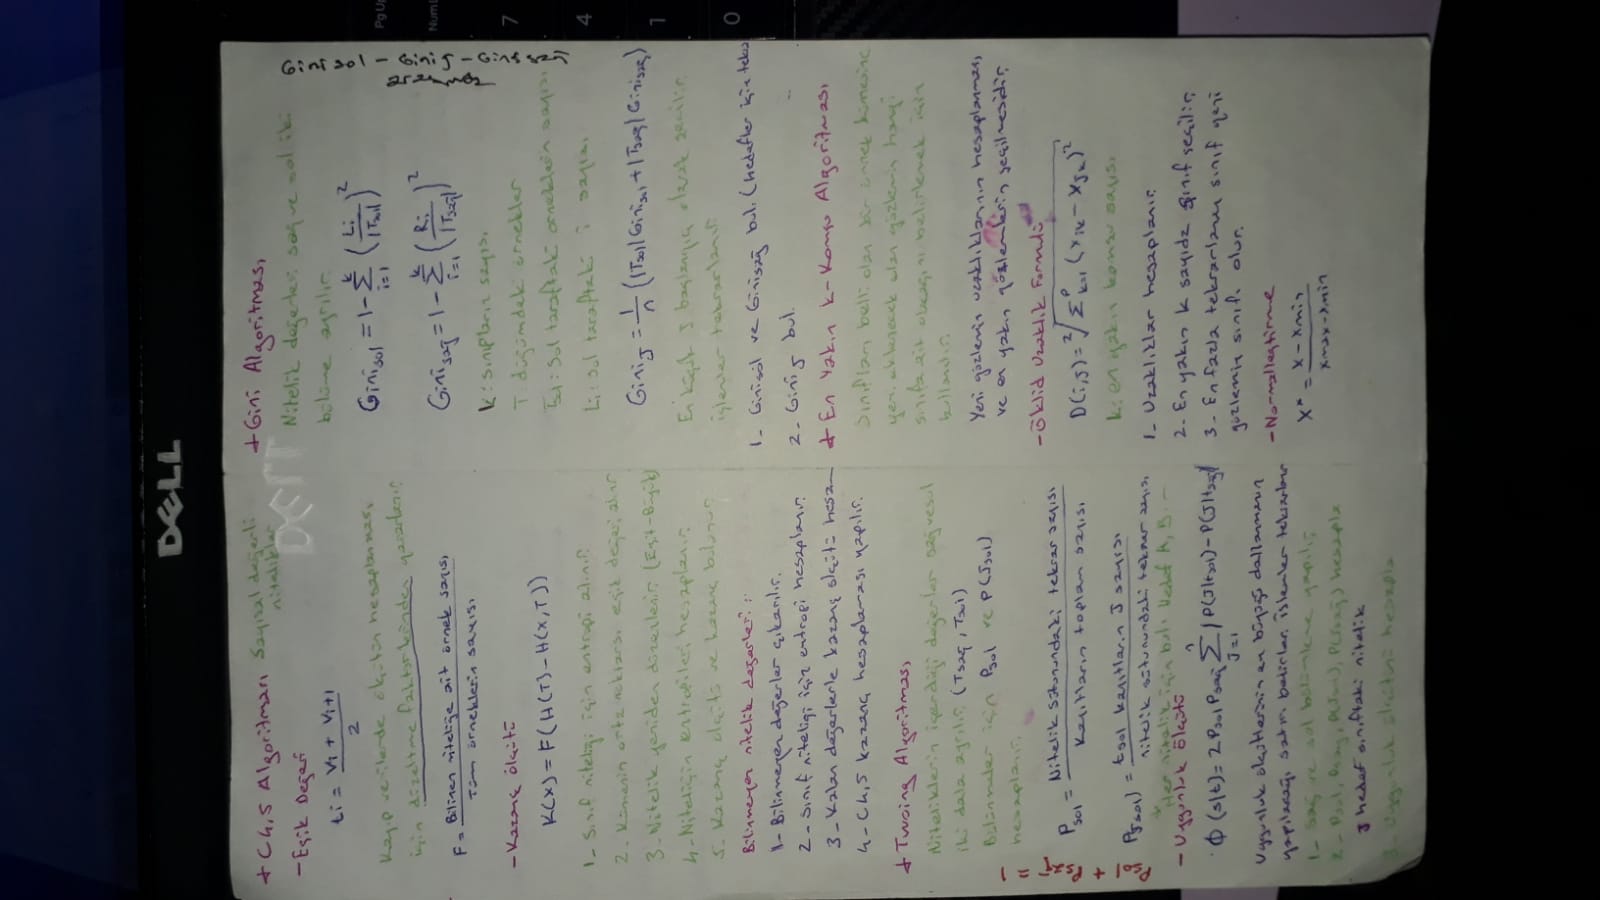 DELL
+ C4,5 Algoritması Sayısal değerli
nitelikler
- Eşik Değeri
ti = Vi + Vi+1 / 2
Kayıp verilerde ölçütün hesaplanması
için düzeltme faktöründen yararlanır
F = Bilinen niteliğe ait örnek sayısı / Tüm örneklerin sayısı
- Kazanç ölçütü
K(x) = F(H(T) - H(x,T))
1- Sınıf niteliği için entropi alınır.
2- Kümenin orta noktası eşik değeri alınır
3- Nitelik yeniden düzenlenir (Eşit-Büyük)
4- Niteliğin entropileri hesaplanır.
5- Kazanç ölçütü ve kazanç bulunur
Bilinmeyen nitelik değerleri:
1- Bilinmeyen değerler çıkarılır.
2- Sınıf niteliği için entropi hesaplanır.
3- Kalan değerlerle kazanç ölçütü hesa
4- C4,5 kazanç hesaplaması yapılır.
+ Twoing Algoritması
Niteliklerin içerdiği değerler sağ ve sol
iki dala ayrılır (Tsağ, Tsol)
Bölünmeler için Psol ve P(Jsol)
hesaplanır.
Psol = Nitelik sütunundaki tekrar sayısı / Kayıtların toplam sayısı
P(Jsol) = tsol kayıtların J sayısı / nitelik sütunundaki tekrar sayısı
*Her nitelik için bul. Hedef A, B. -
Psol + Psağ = 1
- Uygunluk ölçütü
Φ(s|t) = 2 Psol Psağ Σ n J=1 |P(J|tsol) - P(J|tsağ)|
Uygunluk ölçütlerinin en büyüğü dallanmanın
yapılacağı satırı belirler. İşlemler tekrarlanır
1- Sağ ve sol bölümleme yapılır
2- Psol, Psağ, P(Jsol), P(Jsağ) hesapla
J hedef sınıftaki nitelik
3- Uygunluk ölçütünü hesapla
+ Gini Algoritması
Nitelik değerleri sağ ve sol iki
bölüme ayrılır
Ginisol = 1 - Σ k i=1 (Li / |Tsol|)²
Ginisağ = 1 - Σ k i=1 (Ri / |Tsağ|)²
k: sınıfların sayısı
T: düğümdeki örnekler
Tsol: Sol taraftaki örneklerin sayısı
Li: sol taraftaki i sayısı
GiniJ = 1/n (|Tsol| Ginisol + |Tsağ| Ginisağ)
En küçük J başlangıç olarak seçilir
işlemler tekrarlanır
1- Ginisol ve Ginisağ bul. (hedefler için teker
2- GiniJ bul.
Gini sol - Gini J - Gini sağ
+ En Yakın k-Komşu Algoritması
Sınıfları belli olan bir örnek kümesine
yeni eklenecek olan gözlemin hangi
sınıfa ait olacağını belirlemek için
kullanılır.
Yeni gözlemin uzaklıklarının hesaplanması
ve en yakın gözlemlerin seçilmesidir.
- Öklid Uzaklık Formülü
D(i,J) = ²√ Σ p k=1 (xik - xJk)²
k: en yakın komşu sayısı
1- Uzaklıklar hesaplanır
2- En yakın k sayıda sınıf seçilir
3- En fazla tekrarlanan sınıf yeni
gözlemin sınıfı olur.
- Normalleştirme
X* = x - xmin / xmax - xmin
Pg Up
Num
7
4
1
0